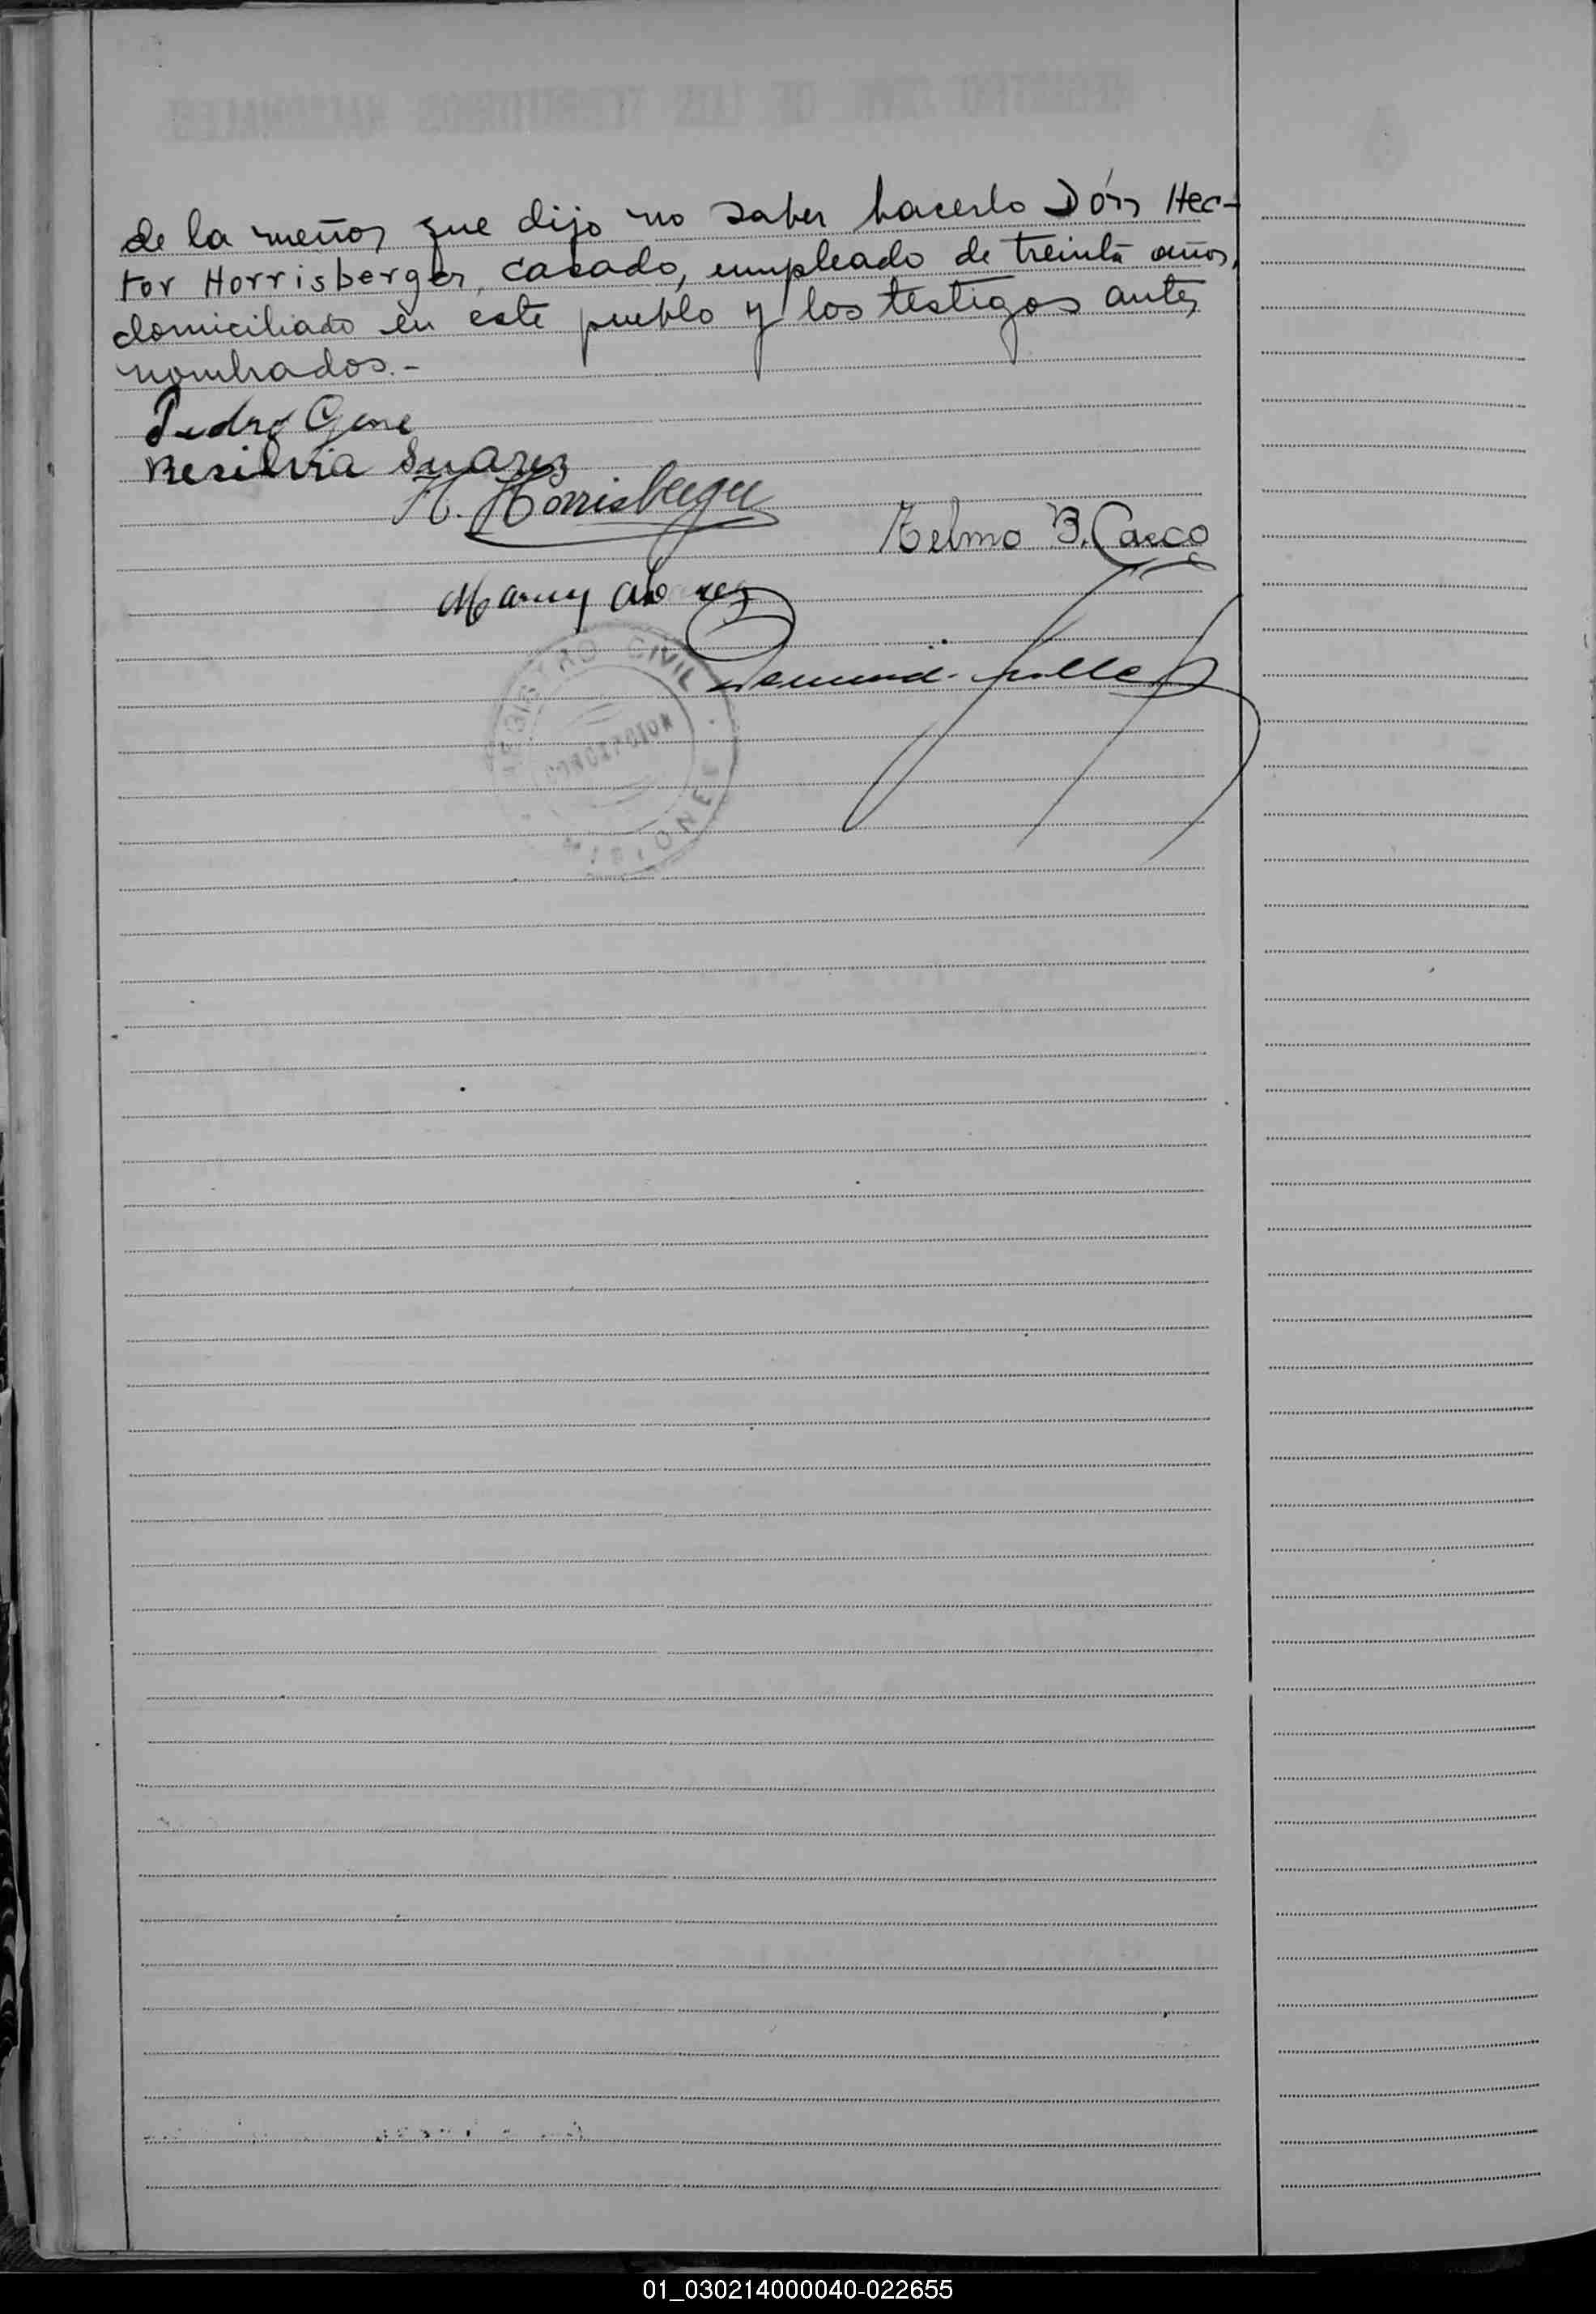 de la menor que dijo no saber hacerlo Dón Hec-
tor Horrisberger, casado, empleado de treinta años,
domiciliado en este pueblo y los testigos antes
nombrados.-
Pedro Gene
Resilvia Suarez
H. Horrisberger
Telmo B. Casco
REGISTRO CIVIL
MISIONES
01_030214000040-022655